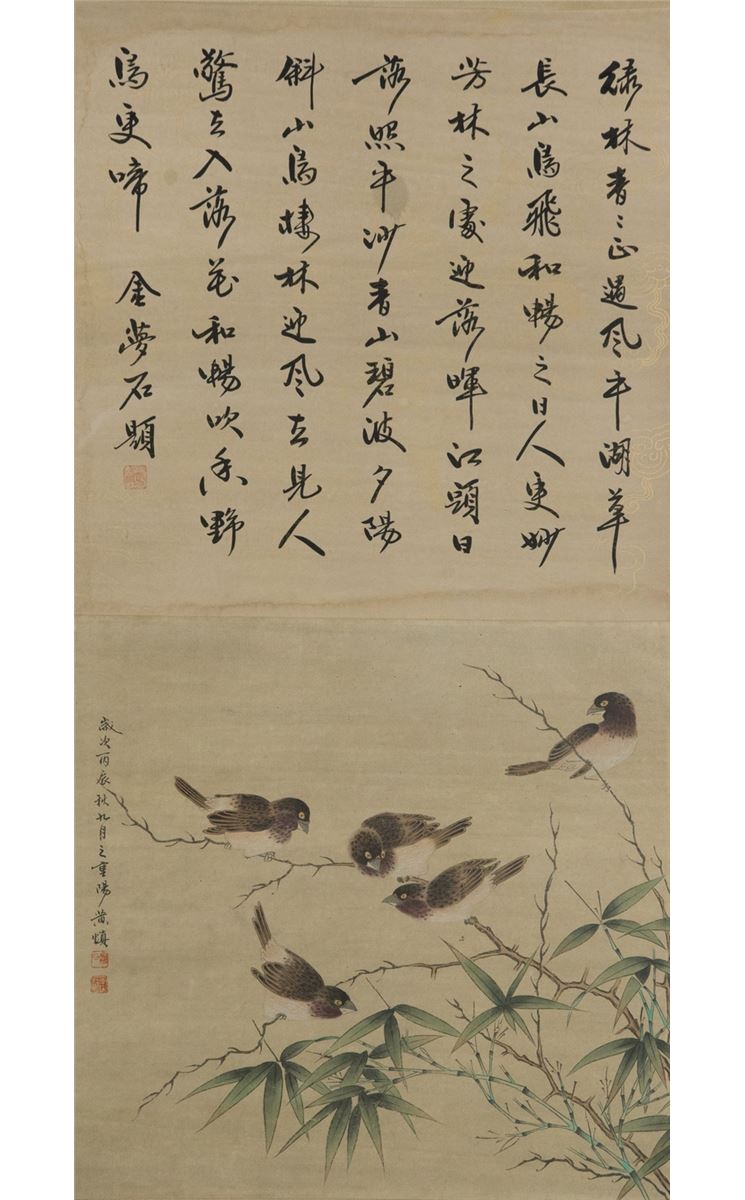 緑林青〻正過風平湖草
長山鳥飛和暢之日人更妙
芳林之處迎落暉江頭日
落照平沙青山碧波夕陽
斜小鳥棲林迎風去見人
驚去入落花和暢吹香野
鳥更啼 金夢石題
歲次丙辰秋九月之重陽 黄慎